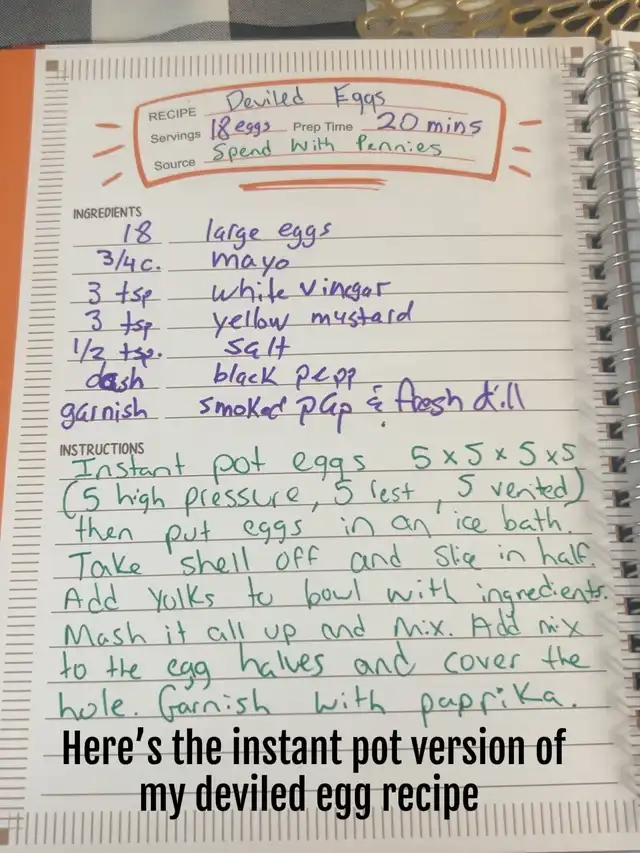 RECIPE Deviled Eggs
Servings 18 eggs Prep Time 20 mins
Source Spend With Pennies
INGREDIENTS
18 large eggs
3/4 c. mayo
3 tsp white vinegar
3 tsp yellow mustard
1/2 tsp. salt
dash black pepp
garnish smoked pap & fresh dill
INSTRUCTIONS
Instant pot eggs 5x5x5x5
(5 high pressure, 5 rest, 5 vented)
then put eggs in an ice bath.
Take shell off and slice in half.
Add yolks to bowl with ingredients.
Mash it all up and mix. Add mix
to the egg halves and cover the
hole. Garnish with paprika.
Here's the instant pot version of
my deviled egg recipe